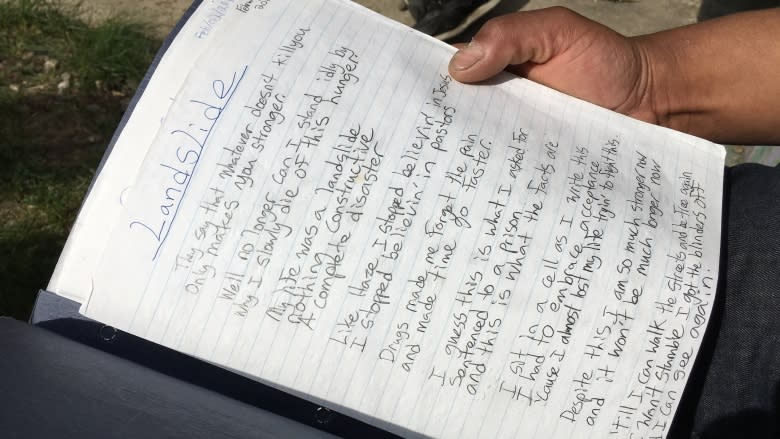 Landslide
They say that whatever doesn't kill you
only makes you stronger.
Well no longer can I stand idly by
why I slowly die of this hunger?
My life was a landslide
Nothing constructive
A complete disaster
Like Haze, I stopped believin' in Jesus
I stopped believin' in pastors
Drugs made me forget the pain
and made time go faster.
I guess this is what I asked for
Sentenced to a prison
and this is what the facts are
I sit in a cell as I write this
I had to embrace acceptance
'Cause I almost lost my life tryin' to fight this.
Despite this I am so much stronger now
and it won't be much longer now
till I can walk the streets and be free again
I won't stumble I got the blinders off
I can see again.